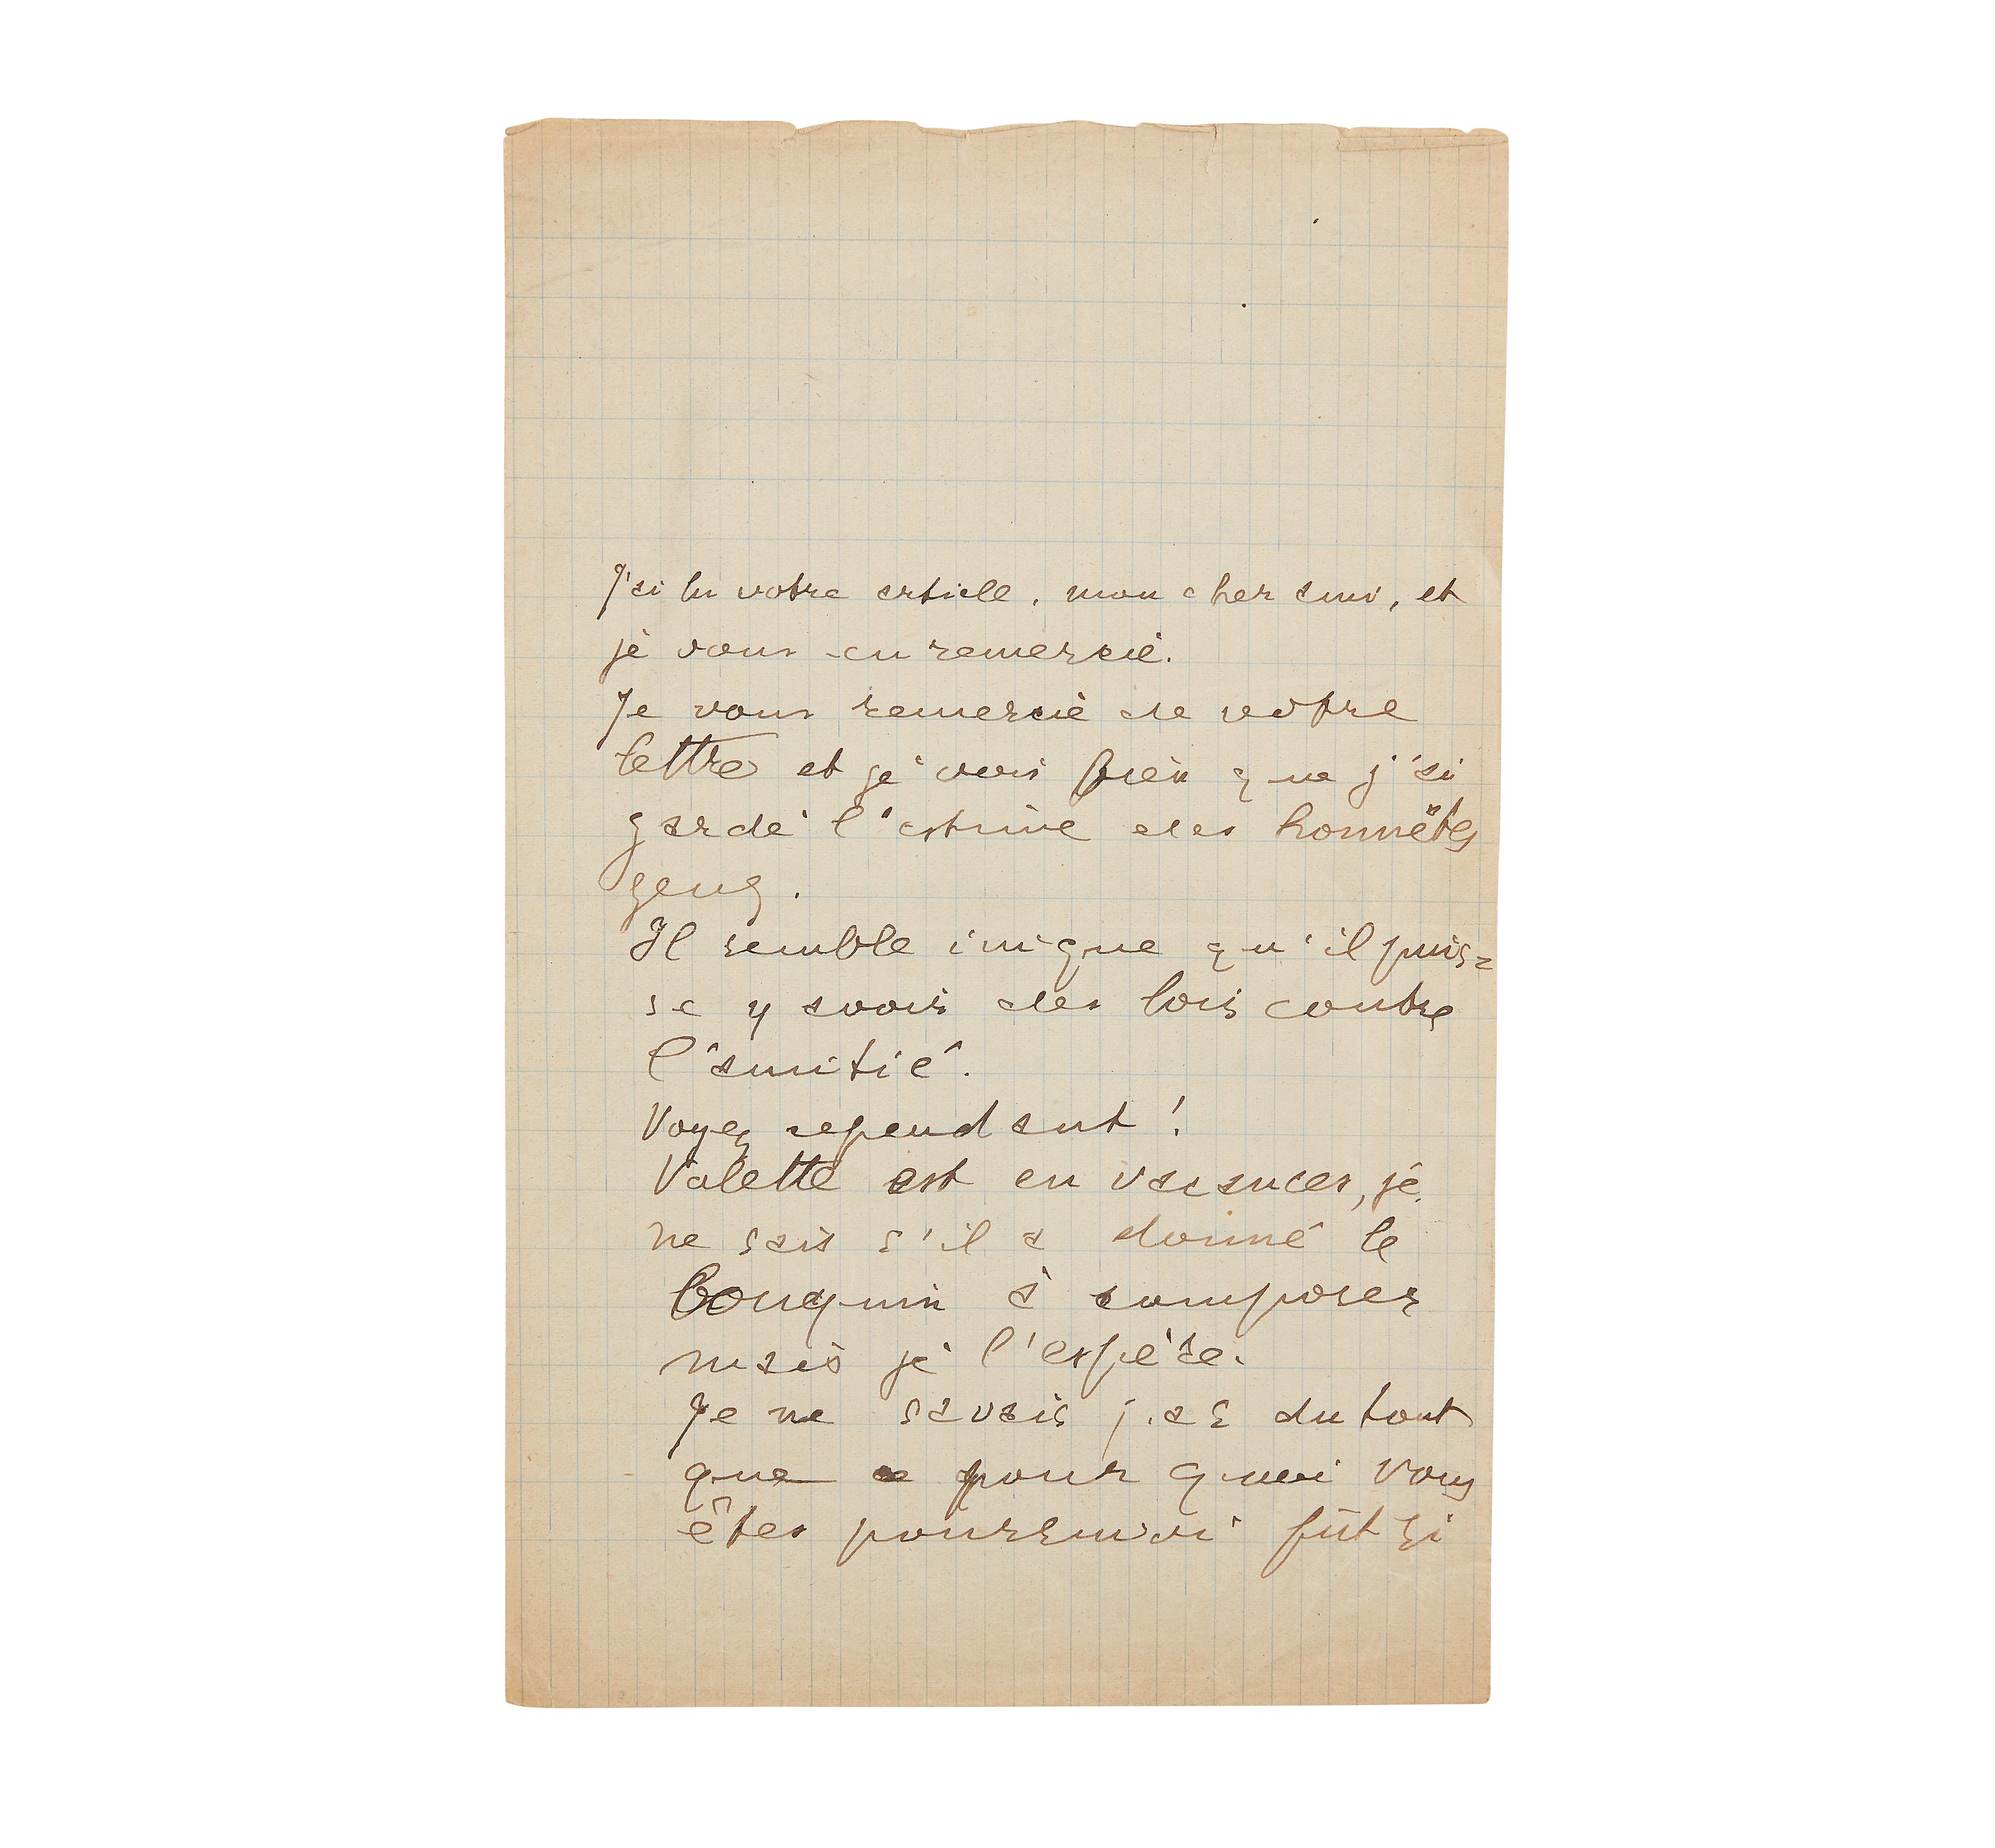 J'ai lu votre article, mon cher ami, et
je vous en remercie.
Je vous remercie de votre
lettre et je vois bien que j'ai
gardé l'estime des honnêtes
gens.
Il semble inique qu'il puis=
se y avoir des lois contre
l'amitié.
Voyez cependant !
Valette est en vacances, je
ne sais s'il a donné le
bouquin à composer
mais je l'espère.
Je ne savais pas du tout
que ce pour quoi vous
êtes poursuivi fût si